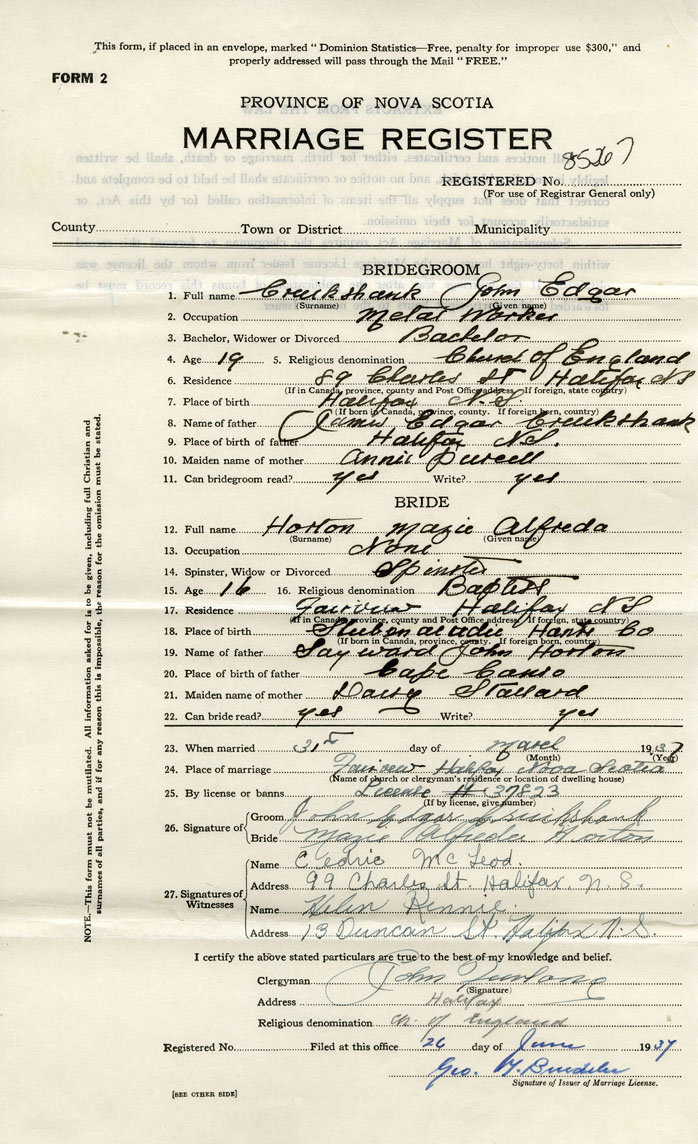 This form, if placed in an envelope, marked "Dominion Statistics—Free, penalty for improper use $300," and
properly addressed will pass through the Mail "FREE."
FORM 2
PROVINCE OF NOVA SCOTIA
MARRIAGE REGISTER
REGISTERED No. 85267
(For use of Registrar General only)
County Town or District Municipality
BRIDEGROOM
1. Full name Cruikshank John Edgar
(Surname) (Given name)
2. Occupation Metal Worker
3. Bachelor, Widower or Divorced Bachelor
4. Age 19 5. Religious denomination Church of England
6. Residence 89 Charles St Halifax NS
(If in Canada, province, county and Post Office address. If foreign, state country)
7. Place of birth Halifax N.S.
(If born in Canada, province, county. If foreign born, country)
8. Name of father James Edgar Cruikshank
9. Place of birth of father Halifax N.S.
10. Maiden name of mother Annie Purcell
11. Can bridegroom read? yes Write? yes
BRIDE
12. Full name Horton Mazie Alfreda
(Surname) (Given name)
13. Occupation None
14. Spinster, Widow or Divorced Spinster
15. Age 16 16. Religious denomination Baptist
17. Residence Fairview Halifax NS
(If in Canada, province, county and Post Office address. If foreign, state country)
18. Place of birth Stubenacadie Hants Co
(If born in Canada, province, county. If foreign born, country)
19. Name of father Sayward John Horton
20. Place of birth of father Cape Canso
21. Maiden name of mother Daisy Stallard
22. Can bride read? yes Write? yes
23. When married 31st day of March 1937
(Month) (Year)
24. Place of marriage Fairview Halifax Nova Scotia
(Name of church or clergyman's residence or location of dwelling house)
25. By license or banns License # 37823
(If by license, give number)
26. Signature of Groom John Edgar Cruikshank
Bride Mazie Alfreda Horton
27. Signatures of Witnesses Name Cedric McLeod.
Address 99 Charles St. Halifax. N. S.
Name Helen Rennie.
Address 13 Duncan St. Halifax N.S.
I certify the above stated particulars are true to the best of my knowledge and belief.
Clergyman John Furlong
(Signature)
Address Halifax
Religious denomination Ch. of England
Registered No. Filed at this office 26 day of June 1937
Geo. 
Signature of Issuer of Marriage License.
[SEE OTHER SIDE]
NOTE.—This form must not be mutilated. All information asked for is to be given, including full Christian and
surnames of all parties, and if for any reason this is impossible, the reason for the omission must be stated.